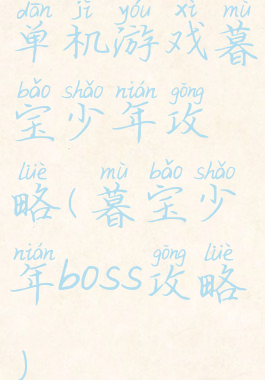 dān jī yóu xì mù
单机游戏暮
bǎo shǎo nián gōng
宝少年攻
lüè mù bǎo shǎo
略(暮宝少
nián gōng lüè
年boss攻略
)